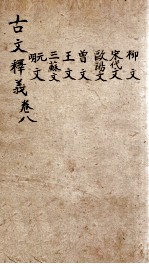 柳文
宋代文
歐陽文
曾文
王文
三蘇文
明元文
古文釋義卷八